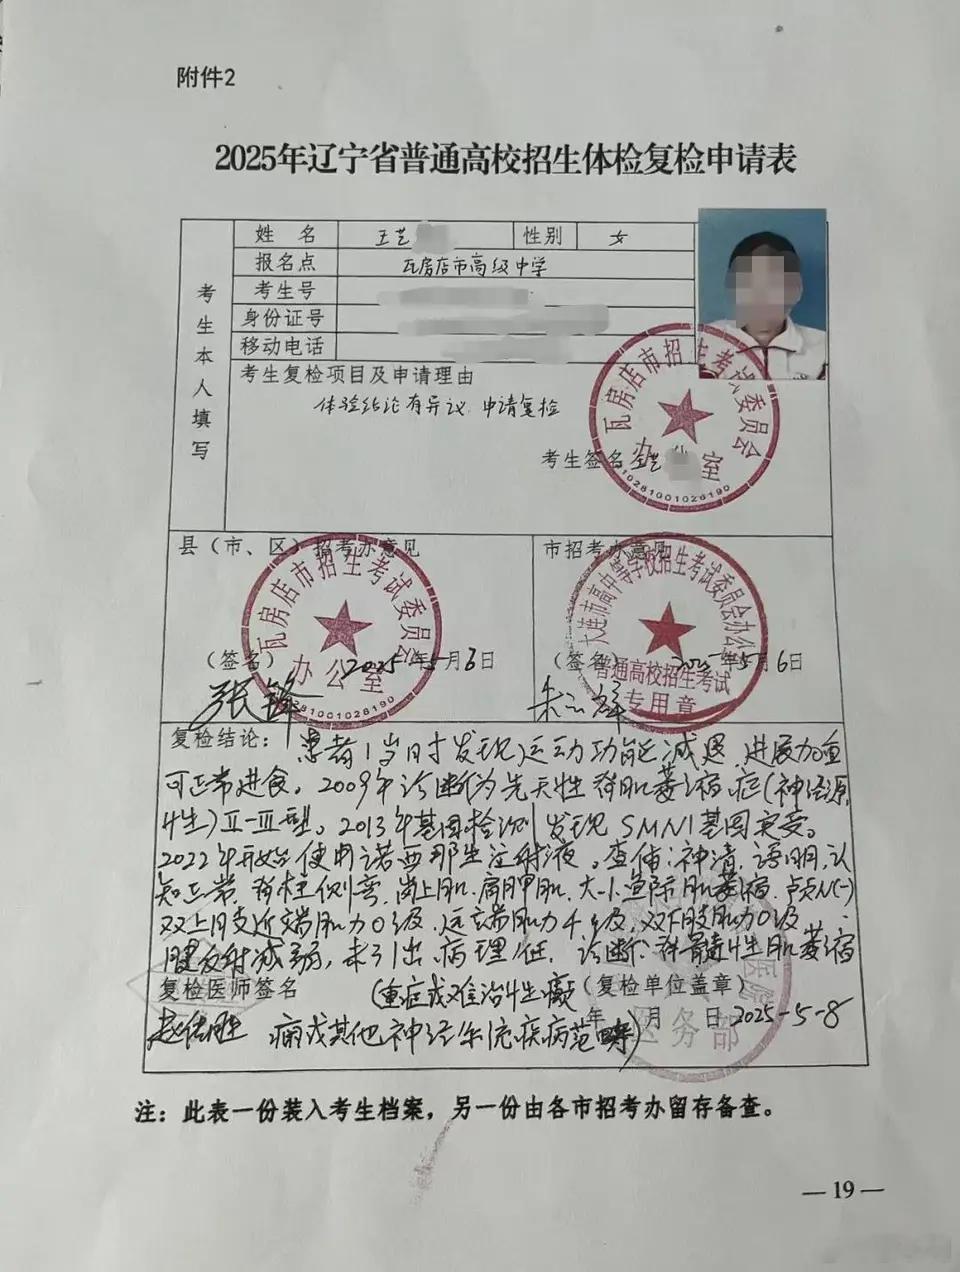 附件2
2025年辽宁省普通高校招生体检复检申请表
考生本人填写
姓名 王艺 性别 女
报名点 瓦房店市高级中学
考生号
身份证号
移动电话
考生复检项目及申请理由
体验结论有异议 申请复检
考生签名 王艺
瓦房店市招生考试委员会
办公室
210281001026190
县（市、区）招考办意见
瓦房店市招生考试委员会
办公室
（签名） 2025年5月6日
张锋
市招考办意见
大连市高中等学校招生考试委员会办公室
普通高校招生考试
专用章
（签名） 2025年5月6日
复检结论：患者1岁时发现运动功能减退，进展加重
可正常进食。2009年诊断为先天性脊肌萎缩症（神经源
性）II-III型。2013年基因检测发现SMN1基因突变。
2022年开始使用诺西那生注射液。查体：神清，语明，认
知正常，脊柱侧弯，岗上肌，肩胛肌，大小鱼际肌萎缩，颅N(-)
双上肢近端肌力0级，远端肌力4级，双下肢肌力0级，
腱反射减弱，未引出病理征。诊断：脊髓性肌萎缩
复检医师签名 （重症或难治性癫 （复检单位盖章）
痫或其他神经系统疾病范畴） 年 月 日 2025-5-8
医院
医务部
注：此表一份装入考生档案，另一份由各市招考办留存备查。
— 19 —